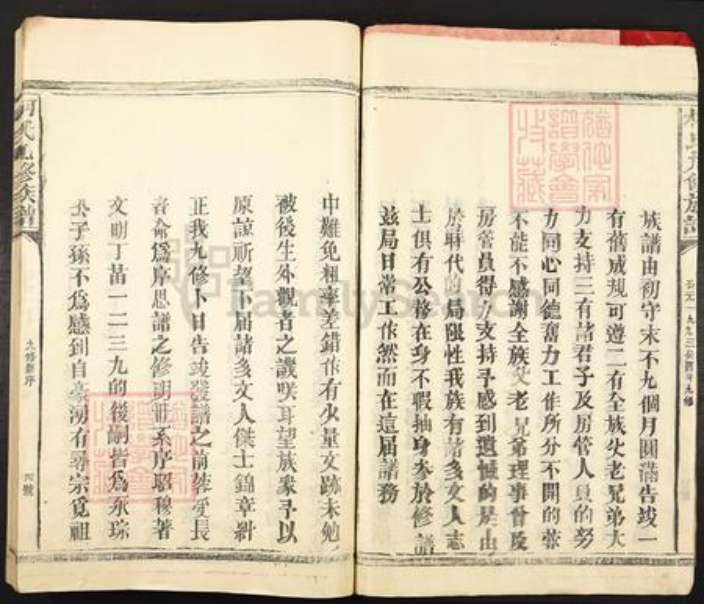 族譜由初守末不九個月圓滿告竣一
有舊成規可遵二有全族父老兄弟大
力支持三有諸君子及房管人員的努
力同心同德奮力工作所分不開的茲
不能不感謝全族父老兄弟理事曾及
房管員得力支持予感到遺憾的是由
於時代的局限性我族有諸多文人志
士俱有公務在身不暇抽身參於修譜
茲局日常工作然而在這屆譜務
中難免粗率差錯作有少量文跡未勉
被後生外觀者之譏咲耳望族衆予以
原諒祈望下屆諸多文人傑士錦章糾
正我九修卜日告竣發譜之前榮受長
者命爲序思譜之修明世系序昭穆著
文明丁苗一二三九的後嗣皆爲永琮
公子孫不爲感到自豪湧有尋宗覓祖
氏九修族譜
九修新序
FamilySearch